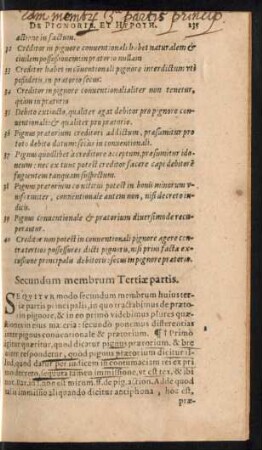 DE PIGNORIB. ET HYPOTH. 235
actione in factum.
32 Creditor in pignore conventionali habet naturalem &
civilem possessionem in pratorio nullam
33 Creditor habet in conventionali pignore interdictum uti
possidetis, in pratorio secus.
34 Creditor in pignore conventionali aliter non tenetur,
quàm in pratorio
35 Debito extincto, qualiter agat debitor pro pignore con-
ventionali: & qualiter pro pratorio.
36 Pignus pratorium creditori addictum, prasumitur pro
toto debito datum: secus in conventionali.
37 Pignus quodlibet à creditore acceptum, prasumitur ido-
neum: nec ex tunc potest creditor facere capi debitorē
fugientem tanquam suspectum.
38 Pignus pratorium constitui potest in bonis minorum v-
nius, conventionale autem non, nisi decreto in-
39 Pignus conventionale & pratorium diversimodo recu-
perantur.
40 Creditor non potest in conventionali pignore agere con-
tra tertios possessores dicti pignoris, nisi priùs facta ex-
cussione principalis debitoris: secus in pignore pratorio.
Secundum membrum Tertiæ partis.
SEQVITVR modo secundum membrum huius ter-
tiæ partis principalis, in quo tractabimus de præto-
rio pignore, & in eo primò videbimus plures quæ-
materia: secundo ponemus differentias
inter pignus conventionale & prætorium. ¶ 1 Primò
quæritur, quid dicatur pignus prætorium, & bre-
viter respondetur, quòd pignus prætorium dicitur il-
lud quod datur per iudicem in contumaciam rei ex pri-
mo decreto, sequuta tamen immissione, ut est tex. & ibi
not. Bar. in l. non est mirum. ff. de pig. action. Adde quod
talis immissio aliquando dicitur
præ-